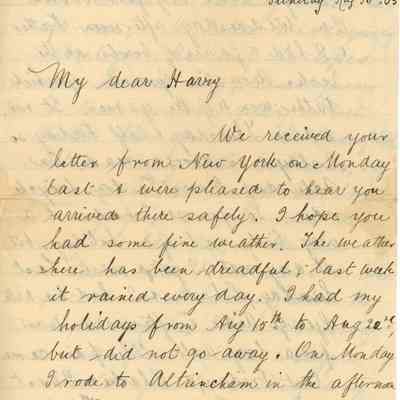 Sunday Aug 30
My dear Harry
We received your
letter from New York on Monday
last & were pleased to hear you
arrived there safely. I hope you
had some fine weather. The weather
here has been dreadful, last week
it rained every day. I had my
holidays from Aug 15th to Aug 22nd,
but did not go away. On Monday
I rode to Altrincham in the afternoon